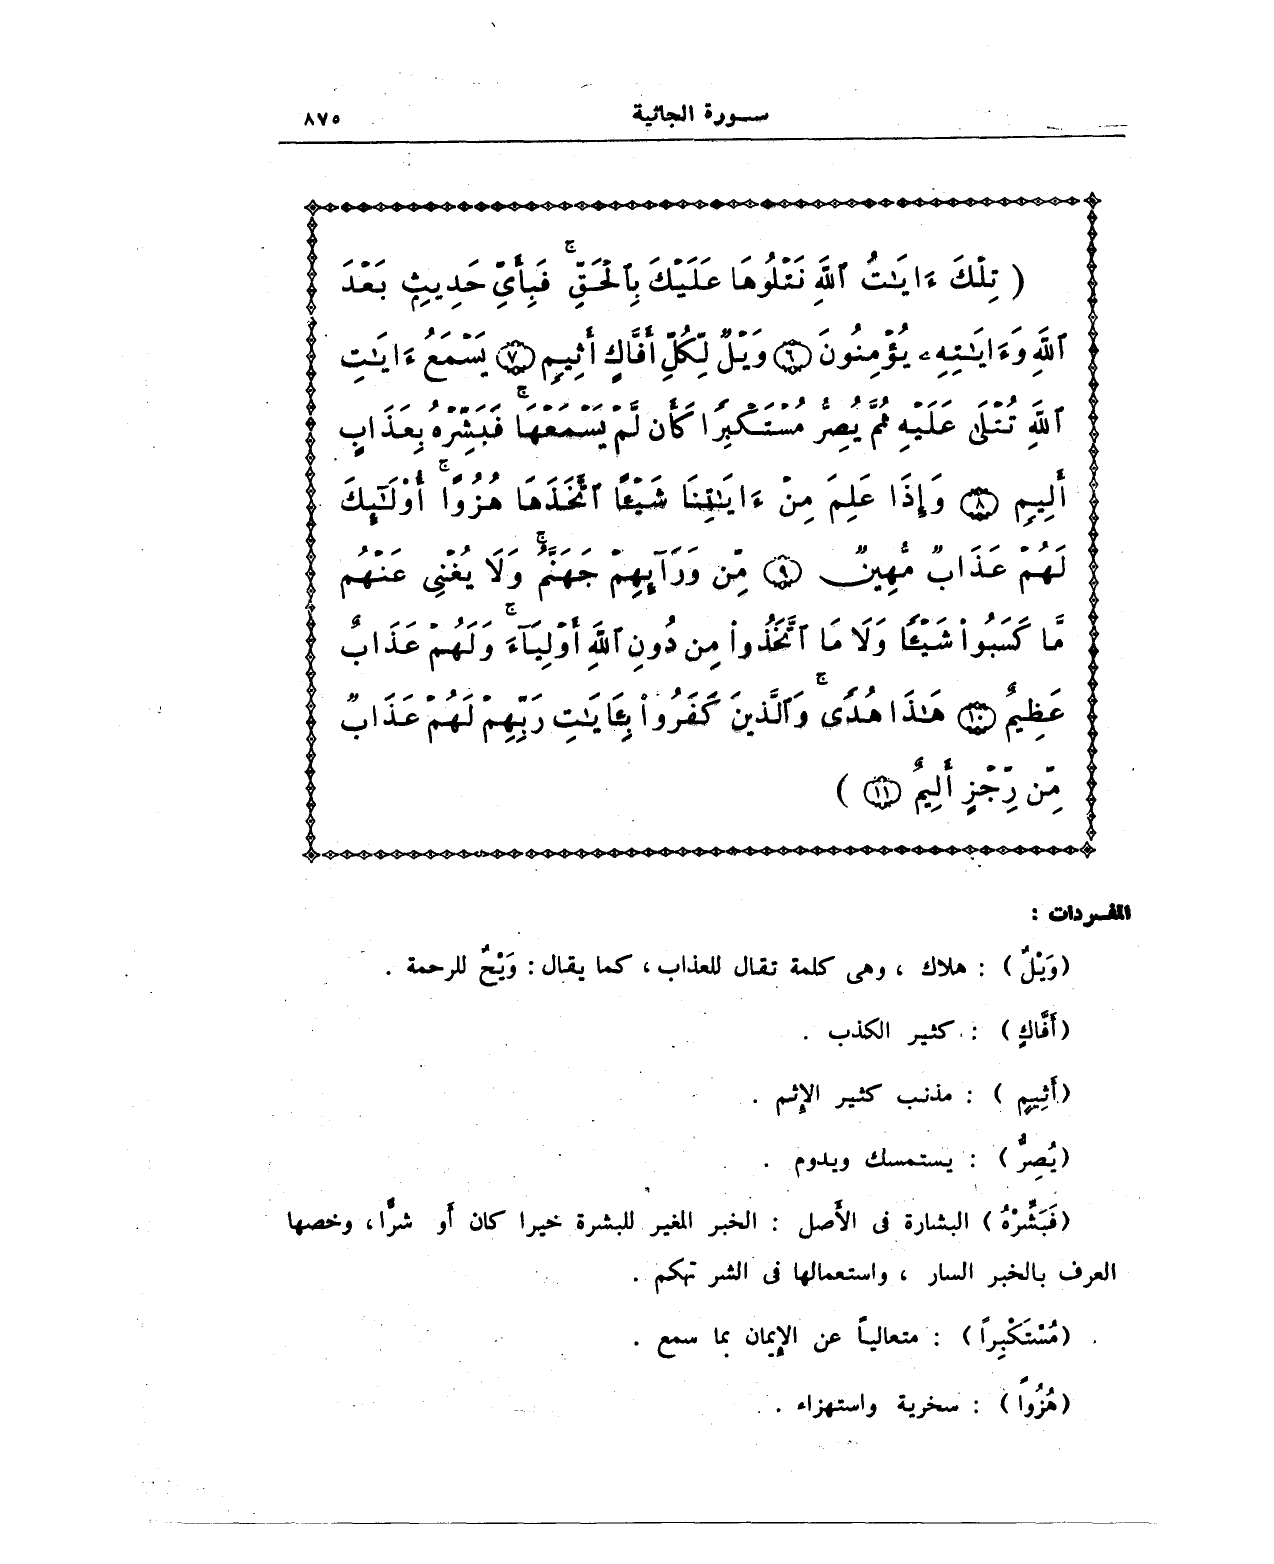 سورة الجاثية ٨٧٥
( تِلْكَ ءَايَٰتُ ٱللَّهِ نَتْلُوهَا عَلَيْكَ بِٱلْحَقِّ ۖ فَبِأَىِّ حَدِيثٍۭ بَعْدَ
ٱللَّهِ وَءَايَٰتِهِۦ يُؤْمِنُونَ ٦ وَيْلٌ لِّكُلِّ أَفَّاكٍ أَثِيمٍ ٧ يَسْمَعُ ءَايَٰتِ
ٱللَّهِ تُتْلَىٰ عَلَيْهِ ثُمَّ يُصِرُّ مُسْتَكْبِرًا كَأَن لَّمْ يَسْمَعْهَا ۖ فَبَشِّرْهُ بِعَذَابٍ
أَلِيمٍ ٨ وَإِذَا عَلِمَ مِنْ ءَايَٰتِنَا شَيْـًٔا ٱتَّخَذَهَا هُزُوًا ۚ أُو۟لَٰٓئِكَ
لَهُمْ عَذَابٌ مُّهِينٌ ٩ مِّن وَرَآئِهِمْ جَهَنَّمُ ۖ وَلَا يُغْنِى عَنْهُم
مَّا كَسَبُوا۟ شَيْـًٔا وَلَا مَا ٱتَّخَذُوا۟ مِن دُونِ ٱللَّهِ أَوْلِيَآءَ ۖ وَلَهُمْ عَذَابٌ
عَظِيمٌ ١٠ هَٰذَا هُدًى ۖ وَٱلَّذِينَ كَفَرُوا۟ بِـَٔايَٰتِ رَبِّهِمْ لَهُمْ عَذَابٌ
مِّن رِّجْزٍ أَلِيمٌ ١١ )
المفردات :
(وَيْلٌ) : هلاك ، وهى كلمة تقال للعذاب ، كما يقال : وَيْحٌ للرحمة .
(أَفَّاكٍ) : كثير الكذب .
(أَثِيمٍ ) : مذنب كثير الإِثم .
(يُصِرُّ) : يستمسك ويدوم .
(فَبَشِّرْهُ) البشارة فى الأَصل : الخبر المغير للبشرة خيرا كان أَو شرًّا ، وخصها
العرف بالخبر السار ، واستعمالها فى الشر تهكم .
(مُسْتَكْبِراً) : متعالياً عن الإِيمان بما سمع .
(هُزُواً) : سخرية واستهزاء .